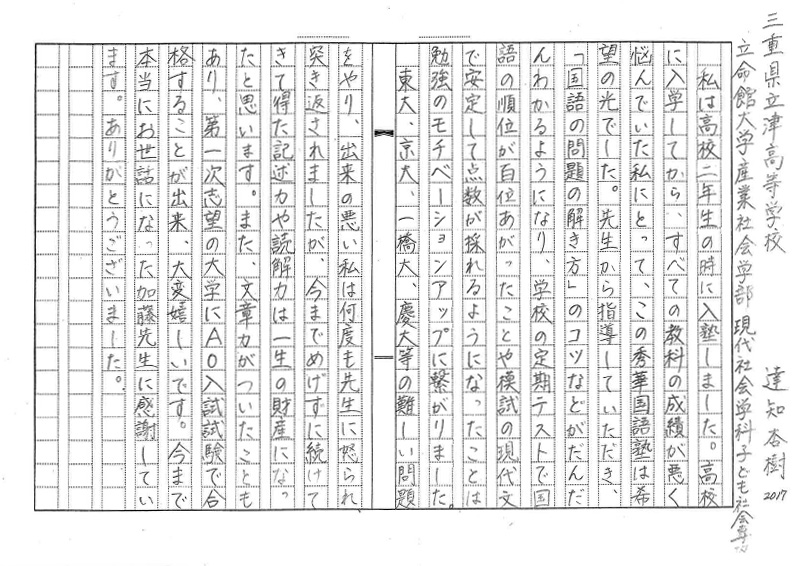 三重県立津高等学校 達知杏樹 2017
立命館大学産業社会学部 現代社会学科子ども社会専攻
私は高校二年生の時に入塾しました。高校
に入学してから、すべての教科の成績が悪く
悩んでいた私にとって、この秀華国語塾は希
望の光でした。先生から指導していただき、
「国語の問題の解き方」のコツなどがだんだ
んわかるようになり、学校の定期テストで国
語の順位が百位あがったことや模試の現代文
で安定して点数が採れるようになったことは
勉強のモチベーションアップに繋がりました。
東大、京大、一橋大、慶大等の難しい問題
をやり、出来の悪い私は何度も先生に怒られ
突き返されましたが、今までめげずに続けて
きて得た記述力や読解力は一生の財産になっ
たと思います。また、文章力がついたことも
あり、第一次志望の大学にAO入試試験で合
格することが出来、大変嬉しいです。今まで
本当にお世話になった加藤先生に感謝してい
ます。ありがとうございました。